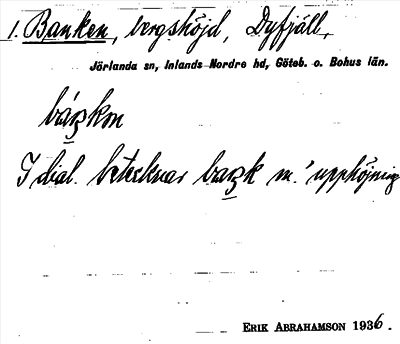 1. Banken, bergshöjd, Dyfjäll,
Jörlanda sn, Inlands Nordre hd, Göteb. o. Bohus län.
báŋkən
I dial. betecknar baŋk m. 'upphöjning
ERIK ABRAHAMSON 1936.